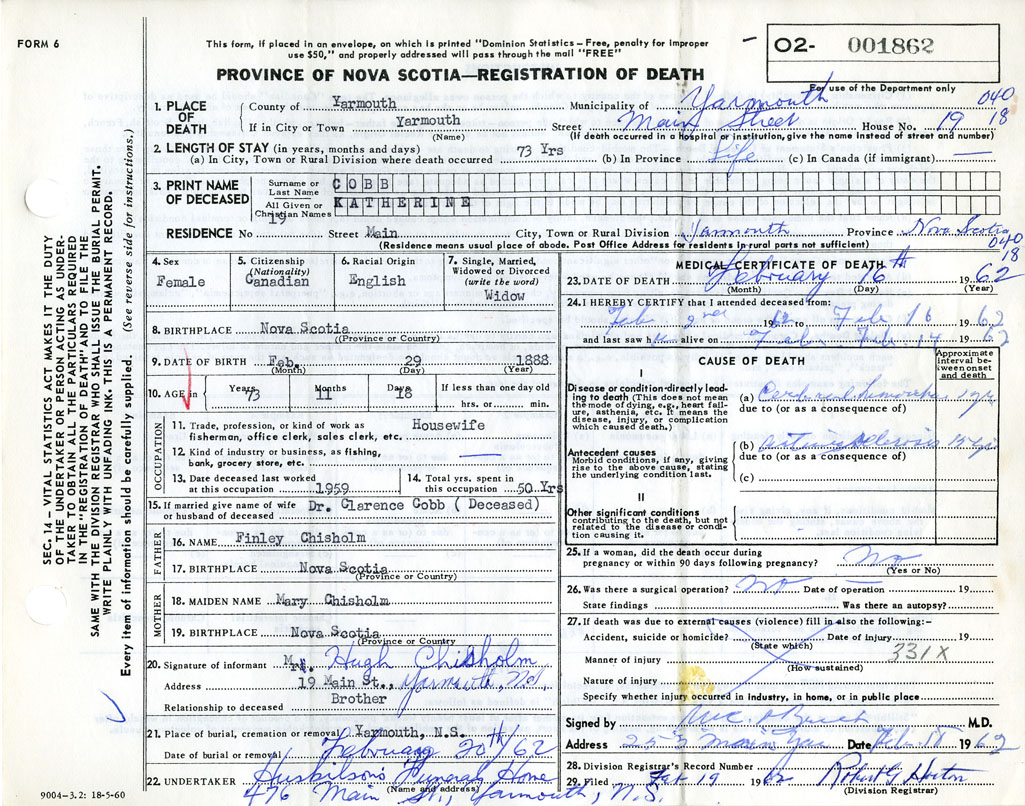 FORM 6
This form, if placed in an envelope, on which is printed "Dominion Statistics – Free, penalty for improper
use $50," and properly addressed will pass through the mail "FREE"
02- 001862
PROVINCE OF NOVA SCOTIA—REGISTRATION OF DEATH
For use of the Department only
040
18
1. PLACE OF DEATH
County of Yarmouth Municipality of Yarmouth
If in City or Town Yarmouth Street Main Street House No. 19
(Name) (If death occurred in a hospital or institution, give the name instead of street and number)
2. LENGTH OF STAY (in years, months and days)
(a) In City, Town or Rural Division where death occurred 73 Yrs (b) In Province Life (c) In Canada (if immigrant) —
3. PRINT NAME OF DECEASED
Surname or Last Name COBB
All Given or Christian Names KATHERINE
RESIDENCE No 19 Street Main City, Town or Rural Division Yarmouth Province Nova Scotia
(Residence means usual place of abode. Post Office Address for residents in rural parts not sufficient)
040
18
4. Sex
Female
5. Citizenship
(Nationality)
Canadian
6. Racial Origin
English
7. Single, Married,
Widowed or Divorced
(write the word)
Widow
8. BIRTHPLACE Nova Scotia
(Province or Country)
9. DATE OF BIRTH Feb. 29 1888
(Month) (Day) (Year)
10. AGE in Years 73 Months 11 Days 18 If less than one day old
hrs. or min.
OCCUPATION
11. Trade, profession, or kind of work as
fisherman, office clerk, sales clerk, etc. Housewife
12. Kind of industry or business, as fishing,
bank, grocery store, etc. —
13. Date deceased last worked
at this occupation 1959
14. Total yrs. spent in
this occupation 50 Yrs
15. If married give name of wife
or husband of deceased Dr. Clarence Cobb ( Deceased)
FATHER
16. NAME Finley Chisholm
17. BIRTHPLACE Nova Scotia
(Province or Country)
MOTHER
18. MAIDEN NAME Mary Chisholm
19. BIRTHPLACE Nova Scotia
(Province or Country
20. Signature of informant Hugh Chisholm
Address 19 Main St., Yarmouth, N.S.
Relationship to deceased Brother
21. Place of burial, cremation or removal Yarmouth, N.S.
Date of burial or removal February 20th/62
22. UNDERTAKER Huskilson's Funeral Home
(Name and address)
476 Main St., Yarmouth, N.S.
MEDICAL CERTIFICATE OF DEATH
23. DATE OF DEATH February 16th 1962
(Month) (Day) (Year)
24. I HEREBY CERTIFY that I attended deceased from:
Feb 2nd 1962 to Feb 16 1962
and last saw h alive on Feb 14 1962
CAUSE OF DEATH
Approximate
interval be-
tween onset
and death
I
Disease or condition directly lead-
ing to death (This does not mean
the mode of dying, e.g., heart fail-
ure, asthenia, etc. It means the
disease, injury, or complication
which caused death.)
(a)
due to (or as a consequence of)
Antecedent causes
Morbid conditions, if any, giving
rise to the above cause, stating
the underlying condition last.
(b)
due to (or as a consequence of)
(c)
II
Other significant conditions
contributing to the death, but not
related to the disease or condi-
tion causing it.
25. If a woman, did the death occur during
pregnancy or within 90 days following pregnancy? No
(Yes or No)
26. Was there a surgical operation? No Date of operation — 19
State findings Was there an autopsy?
27. If death was due to external causes (violence) fill in also the following:-
Accident, suicide or homicide? Date of injury 19
(State which)
331X
Manner of injury
(How sustained)
Nature of injury
Specify whether injury occurred in industry, in home, or in public place
Signed by M.D.
Address 253 Main Date Feb 1962
28. Division Registrar's Record Number
29. Filed Feb 19 1962 Robert G Horton
(Division Registrar)
SEC. 14 – VITAL STATISTICS ACT MAKES IT THE DUTY
OF THE UNDERTAKER OR PERSON ACTING AS UNDER-
TAKER TO OBTAIN ALL THE PARTICULARS REQUIRED
IN THE "REGISTRATION OF DEATH" AND TO FILE THE
SAME WITH THE DIVISION REGISTRAR WHO SHALL ISSUE THE BURIAL PERMIT.
WRITE PLAINLY WITH UNFADING INK. THIS IS A PERMANENT RECORD.
Every item of information should be carefully supplied. (See reverse side for instructions.)
9004-3.2: 18-5-60